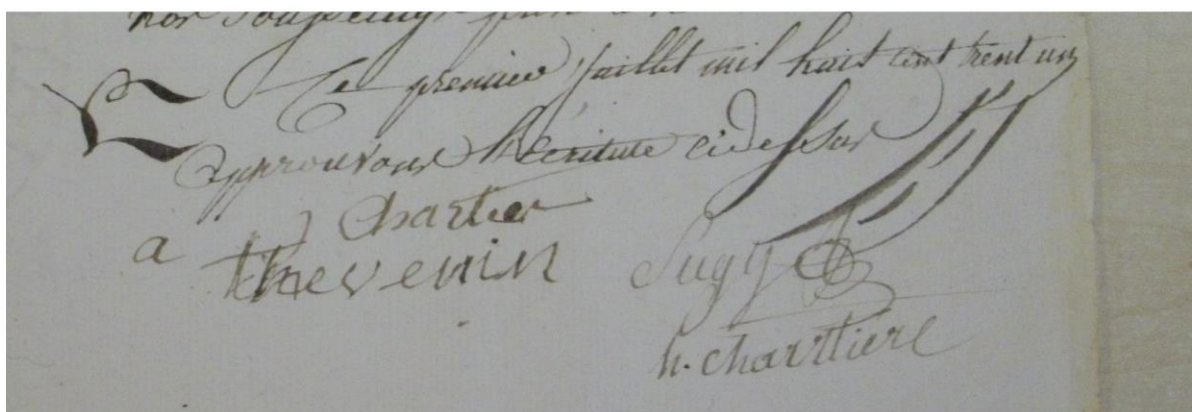 Ce premier juillet mil huit cent trent un
approuvons l'écriture ci dessus
J Chartier
a thevenin Sugy
h. chartiere